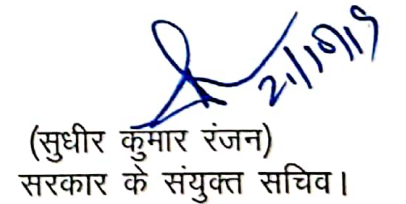 21/10/19
(सुधीर कुमार रंजन)
सरकार के संयुक्त सचिव।